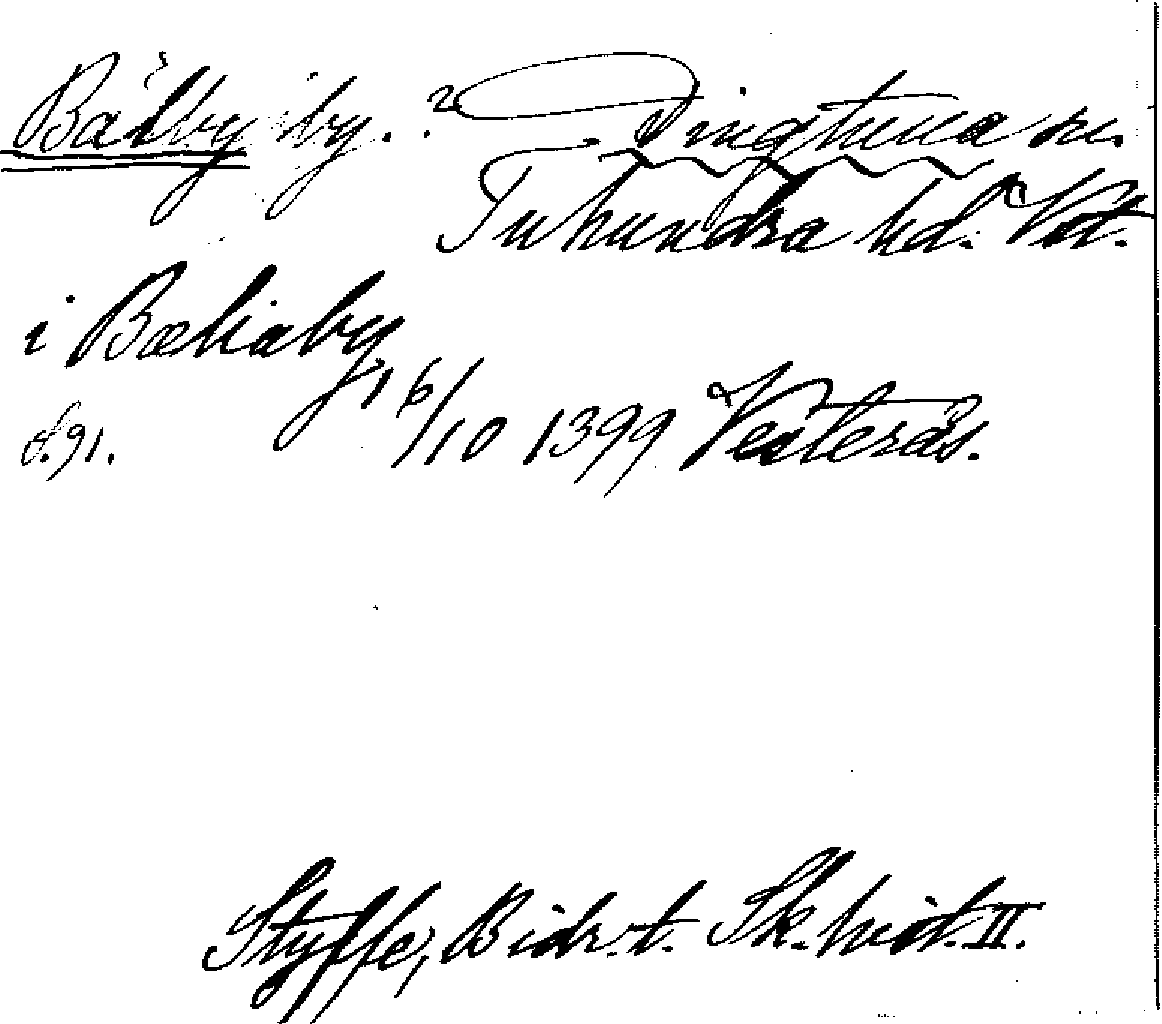 Bälby by. ? Dingtuna sn.
Tuhundra hd. Vst.
i Bæliaby
16/10 1399 Vesterås.
d. 91.
Styffe, Bidr. t. Sk. hist. II.